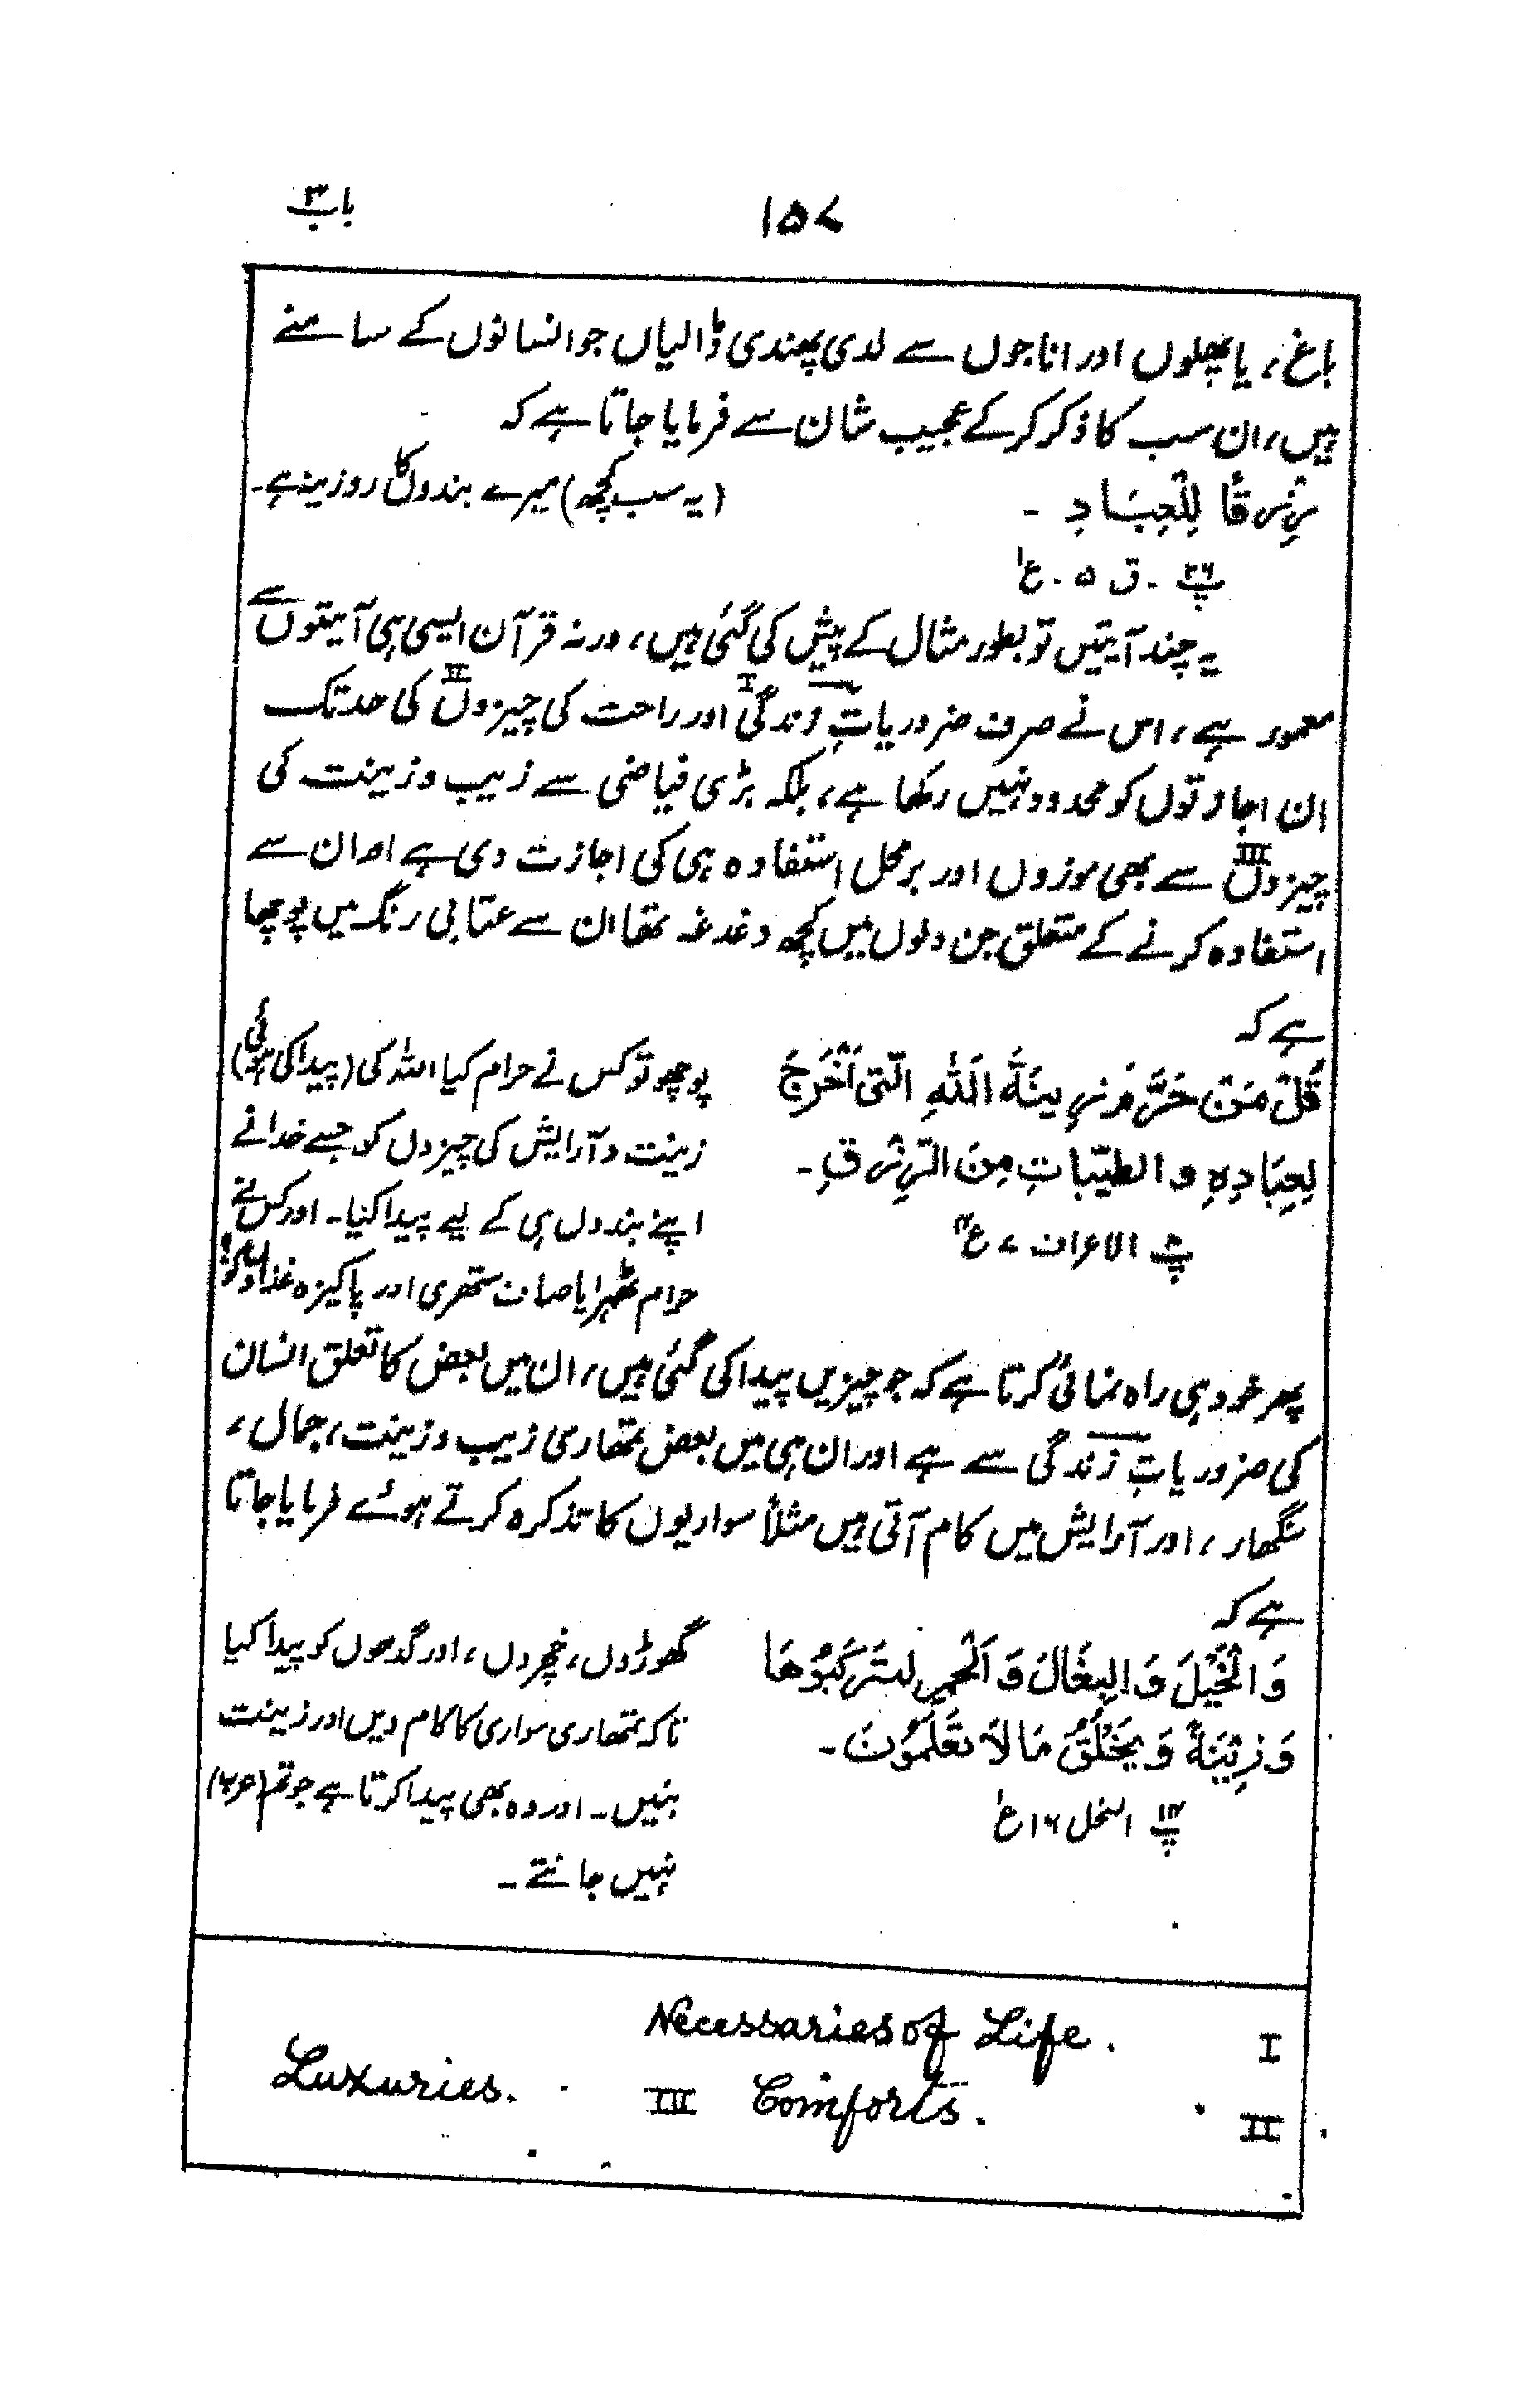 باب ۳
۱۵۷
باغ، یا پھلوں اور اناجوں سے لدی پھندی ڈالیاں جو انسانوں کے سامنے
ہیں، ان سب کا ذکر کر کے عجیب شان سے فرمایا جاتا ہے کہ
رِزْقًا لِلْعِبَادِ ۔
(یہ سب کچھ) میرے بندوں کا روزینہ ہے۔
پ ۲۶ ۔ ق ۵۰ ع ۱
یہ چند آیتیں تو بطور مثال کے پیش کی گئی ہیں، ورنہ قرآن ایسی ہی آیتوں سے
معمور ہے، اس نے صرف ضروریاتِ زندگی I اور راحت کی چیزوں II کی حد تک
ان اجازتوں کو محدود نہیں رکھا ہے، بلکہ بڑی فیاضی سے زیب و زینت کی
چیزوں III سے بھی موزوں اور برمحل استفادہ ہی کی اجازت دی ہے اور ان سے
استفادہ کرنے کے متعلق جن دلوں میں کچھ دغدغہ تھا ان سے عتابی رنگ میں پوچھا
ہے کہ
قُلْ مَنْ حَرَّمَ زِينَةَ اللّٰهِ الَّتِی اَخْرَجَ
لِعِبَادِهٖ وَالطَّیِّبَاتِ مِنَ الرِّزْقِ۔
پ ۸ الاعراف ۷ ع ۴
پوچھو تو کس نے حرام کیا اللہ کی (پیدا کی ہوئی)
زینت و آرایش کی چیزوں کو جسے خدا نے
اپنے بندوں ہی کے لیے پیدا کیا۔ اور کس نے
حرام ٹھہرایا صاف ستھری اور پاکیزہ غذاؤں کو؟
پھر خود ہی راہ نمائی کرتا ہے کہ جو چیزیں پیدا کی گئی ہیں، ان میں بعض کا تعلق انسان
کی ضروریاتِ زندگی سے ہے اور ان ہی میں بعض تمھاری زیب و زینت، جمال،
سنگھار، اور آرایش میں کام آتی ہیں مثلاً سواریوں کا تذکرہ کرتے ہوئے فرمایا جاتا
ہے کہ
وَالْخَيْلَ وَالبِغَالَ وَالْحَمِيرِ لِتَرْكَبُوْهَا
وَزِيْنَةً وَيَخْلُقُ مَا لَا تَعْلَمُوْنَ ۔
پ ۱۴ النحل ۱۶ ع ۱
گھوڑوں، خچروں، اور گدھوں کو پیدا کیا
تاکہ تمھاری سواری کا کام دیں اور زینت
بنیں۔ اور وہ بھی پیدا کرتا ہے جو تم
نہیں جانتے ۔
I Necessaries of Life.
II Comforts. III Luxuries.